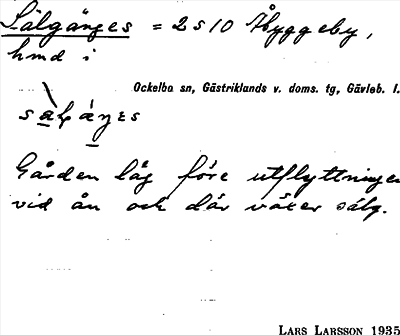 Sälgänges = 2 s 10 Åbyggeby,
hmd i
Ockelbo sn, Gästriklands v. doms. tg, Gävleb. l.
Gården låg före utflyttningen
vid ån och där växer sälg.
LARS LARSSON 1935